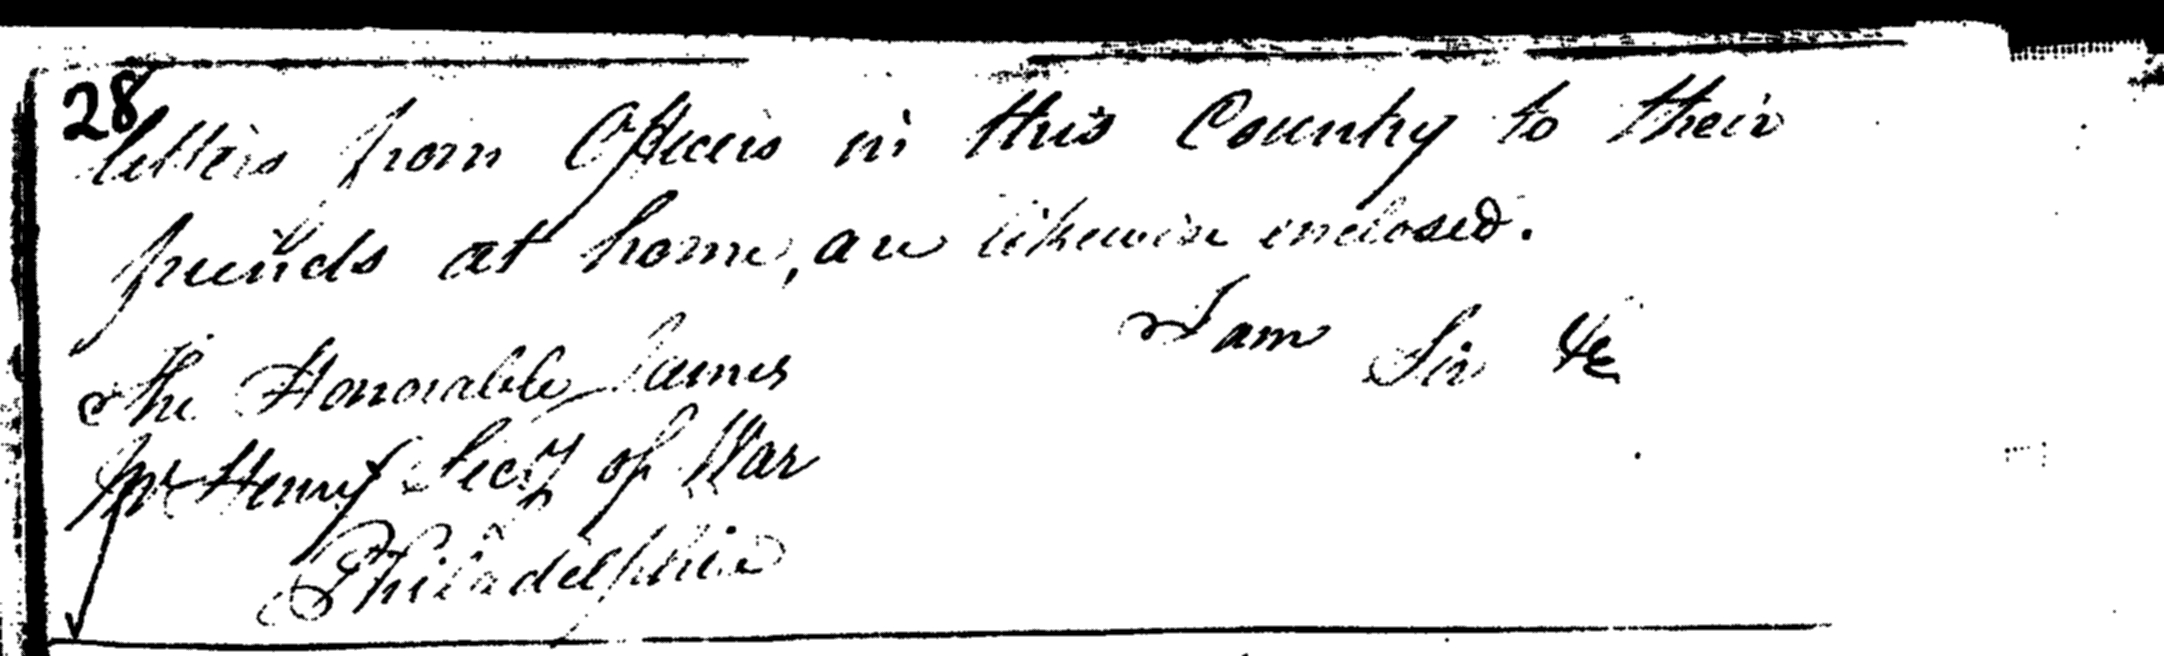 28
letters from Officers in this Country to their
friends at home, are likewise enclosed.
I am Sir &c
The Honorable James
McHenry Secy of War
Philadelphia